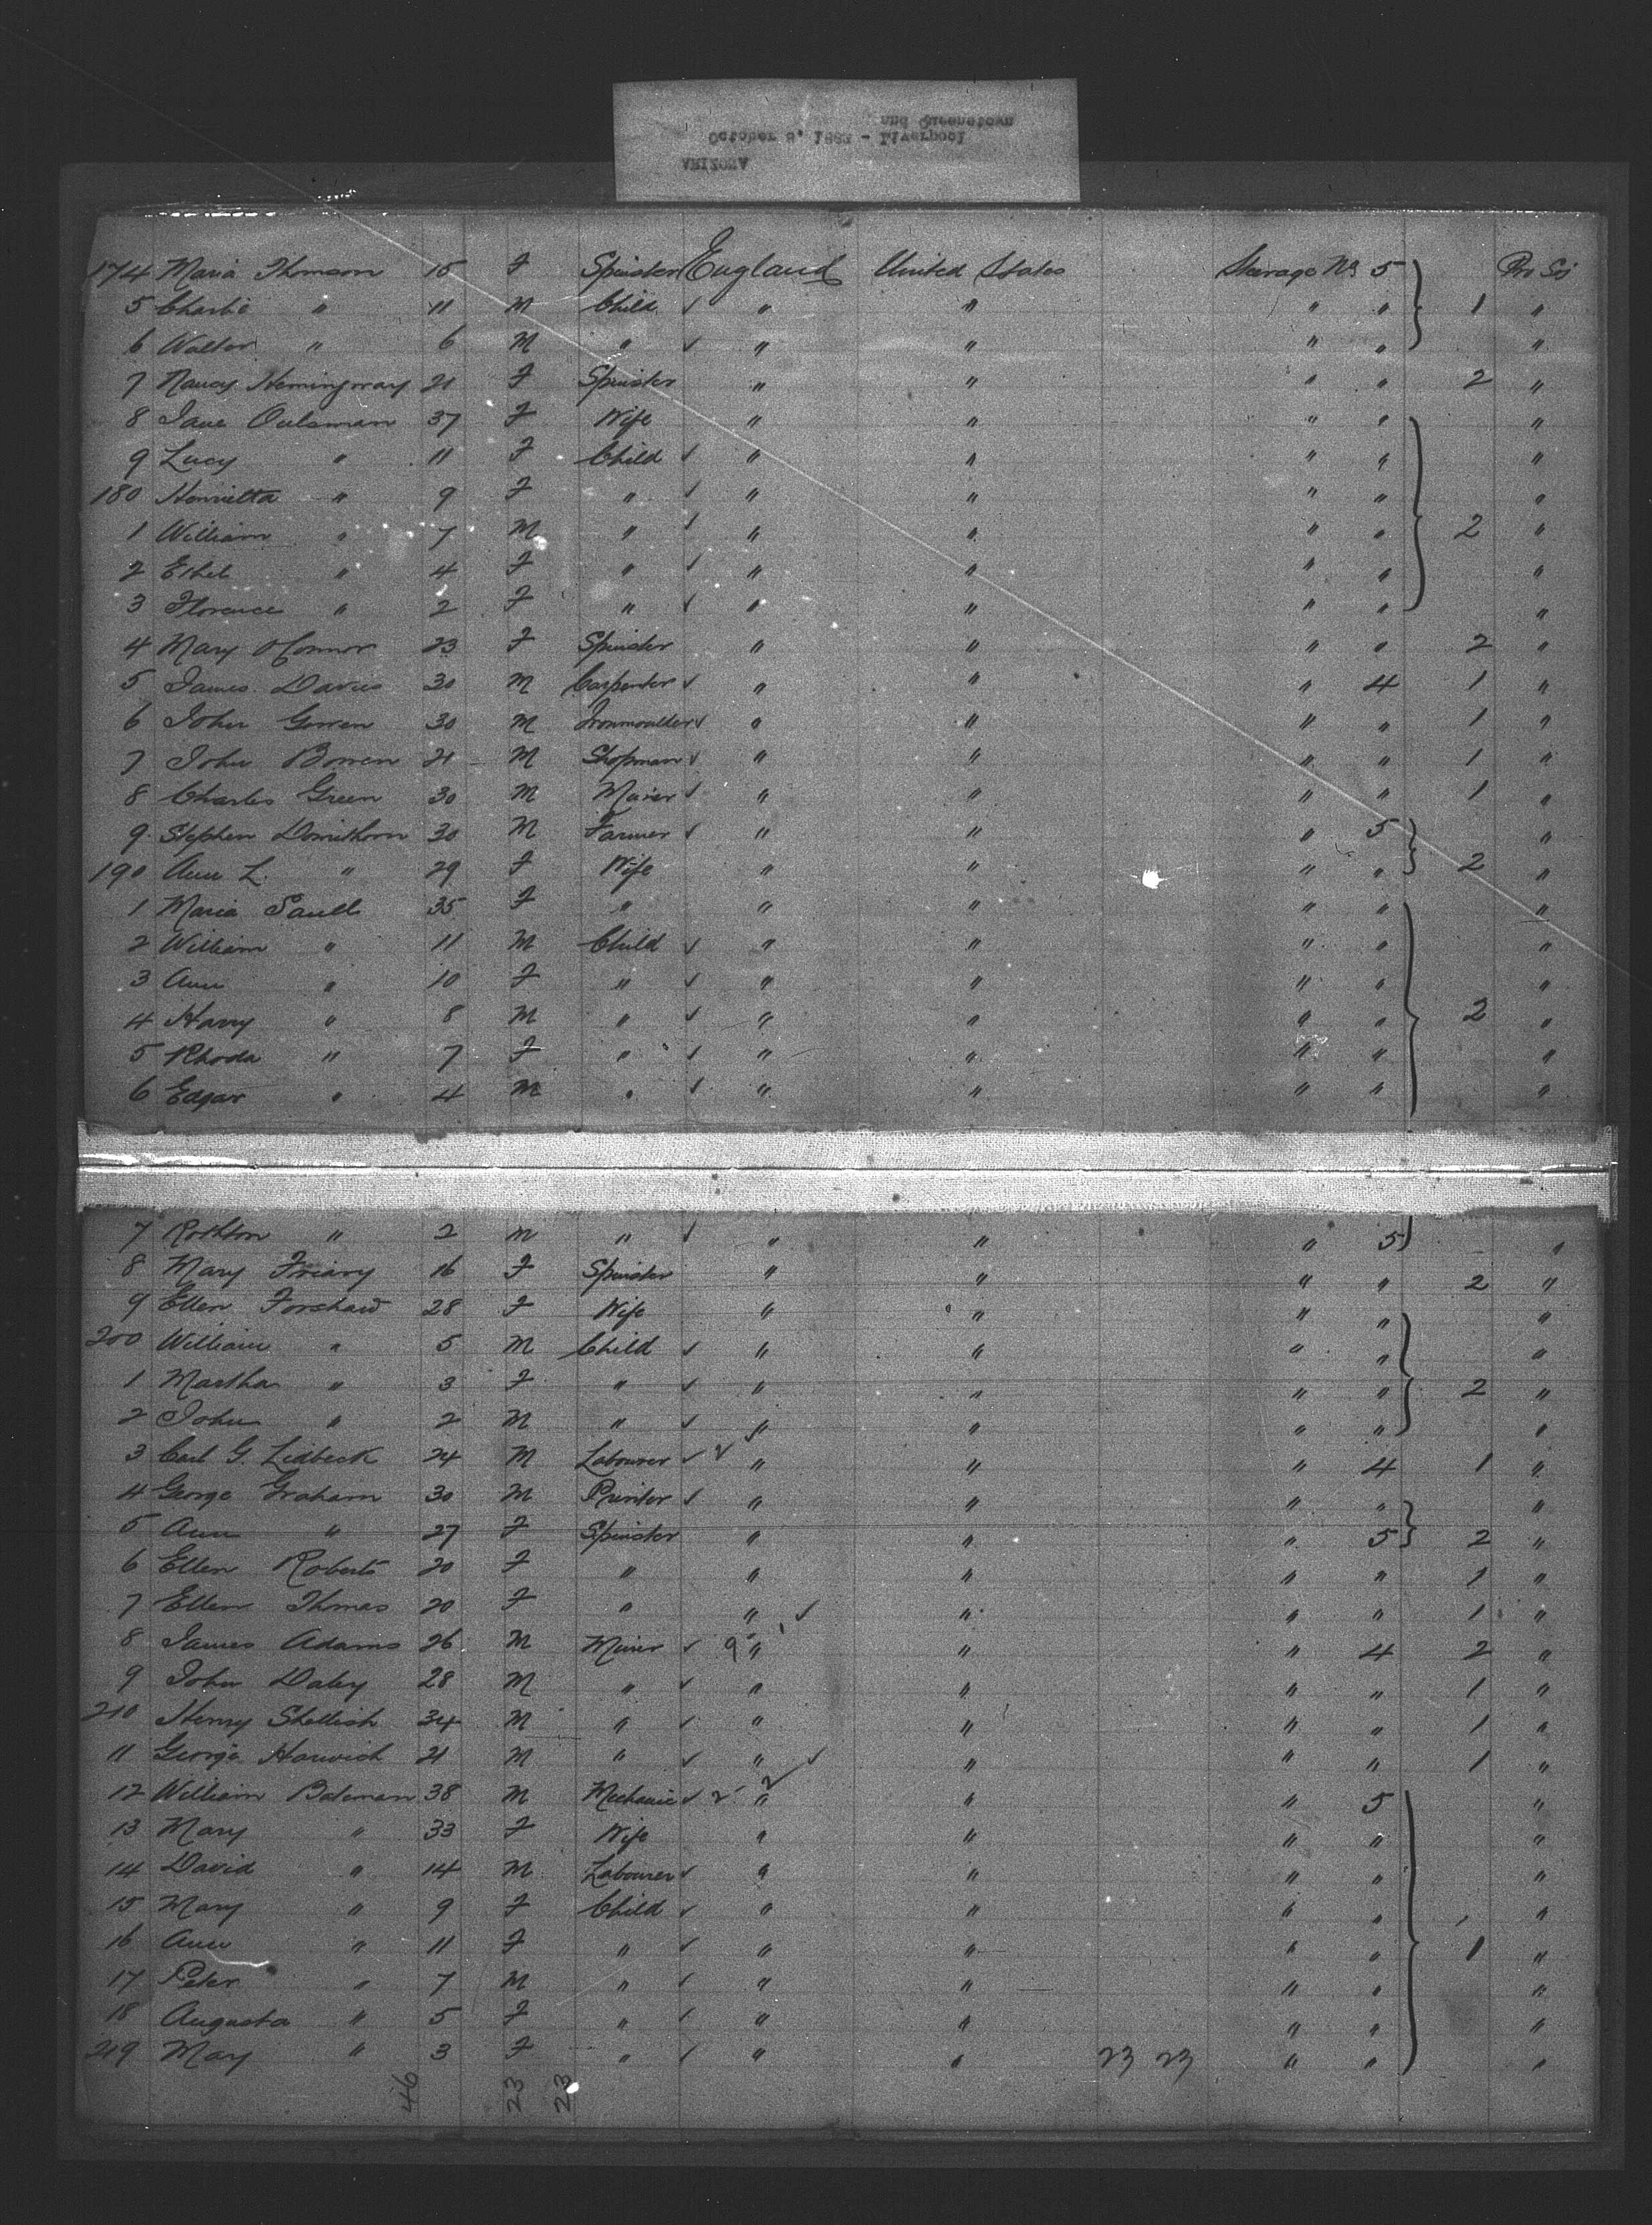 ARIZONA
October 8, 1882 - Liverpool
and Queenstown
174 Maria Thomson 15 F Spinster England United States Steerage No 5 Pro Soj
5 Charlie " 11 M Child ✓ " " " " 1 "
6 Walter " 6 M " ✓ " " " " "
7 Nancy Hemingway 21 F Spinster " " " " 2 "
8 Jane Oulsman 37 F Wife " " " " "
9 Lucy " 11 F Child ✓ " " " " "
180 Henrietta " 9 F " ✓ " " " " "
1 William " 7 M " ✓ " " " " 2 "
2 Ethel " 4 F " ✓ " " " " "
3 Florence " 2 F " ✓ " " " " "
4 Mary O'Connor 23 F Spinster " " " " 2 "
5 James Davies 30 M Carpenter ✓ " " " 4 1 "
6 John Gorren 30 M Ironmoulder ✓ " " " " 1 "
7 John Borren 21 M Shopman ✓ " " " " 1 "
8 Charles Green 30 M Miner ✓ " " " " 1 "
9 Stephen Domithorn 30 M Farmer ✓ " " " 5 "
190 Ann L. " 29 F Wife " " " " 2 "
1 Maria Saull 35 F " " " " " "
2 William " 11 M Child ✓ " " " " "
3 Ann " 10 F " ✓ " " " " "
4 Harry " 8 M " ✓ " " " " 2 "
5 Rhoda " 7 F " ✓ " " " " "
6 Edgar " 4 M " ✓ " " " " "
7 Rothton " 2 M " ✓ " " " 5 "
8 Mary Friary 16 F Spinster " " " " 2 "
9 Ellen Forshaw 28 F Wife " " " " "
200 William " 5 M Child ✓ " " " " "
1 Martha " 3 F " ✓ " " " " 2 "
2 John " 2 M " ✓ " " " " "
3 Carl G. Lidbeck 24 M Labourer ✓ " " " 4 1 "
4 George Graham 30 M Printer ✓ " " " " "
5 Ann " 27 F Spinster " " " 5 2 "
6 Ellen Roberts 20 F " " " " " 1 "
7 Ellen Thmas 20 F " " ✓ " " " 1 "
8 James Adams 26 M Miner ✓ 9 " " " 4 2 "
9 John Daley 28 M " ✓ " " " " 1 "
210 Henry Shellish 34 M " ✓ " " " " 1 "
11 George Harwich 21 M " ✓ " ✓ " " " 1 "
12 William Bateman 38 M Mechanic ✓ " " " 5 "
13 Mary " 33 F Wife " " " " "
14 David " 14 M Labourer ✓ " " " " "
15 Mary " 9 F Child ✓ " " " " "
16 Ann " 11 F " ✓ " " " " 1 "
17 Peter " 7 M " ✓ " " " " "
18 Augusta " 5 F " ✓ " " " " "
219 May " 3 F " ✓ " " 23 23 " " "
46 23 23